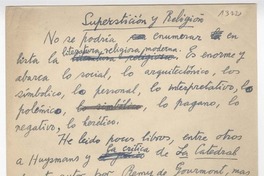 1322
Superstición y Religión
No se podría enumerar en
lista la literatura religiosa moderna. Es enorme y
abarca lo social, lo arquitectónico, los
simbólico, lo personal, lo interpretativo, lo
polémico, lo pagano, lo
negativo, lo herético.
He leído pocos libros, entre otros
a Huysmans y la crítica de La Catedral
por Remy de Gourmont, mas